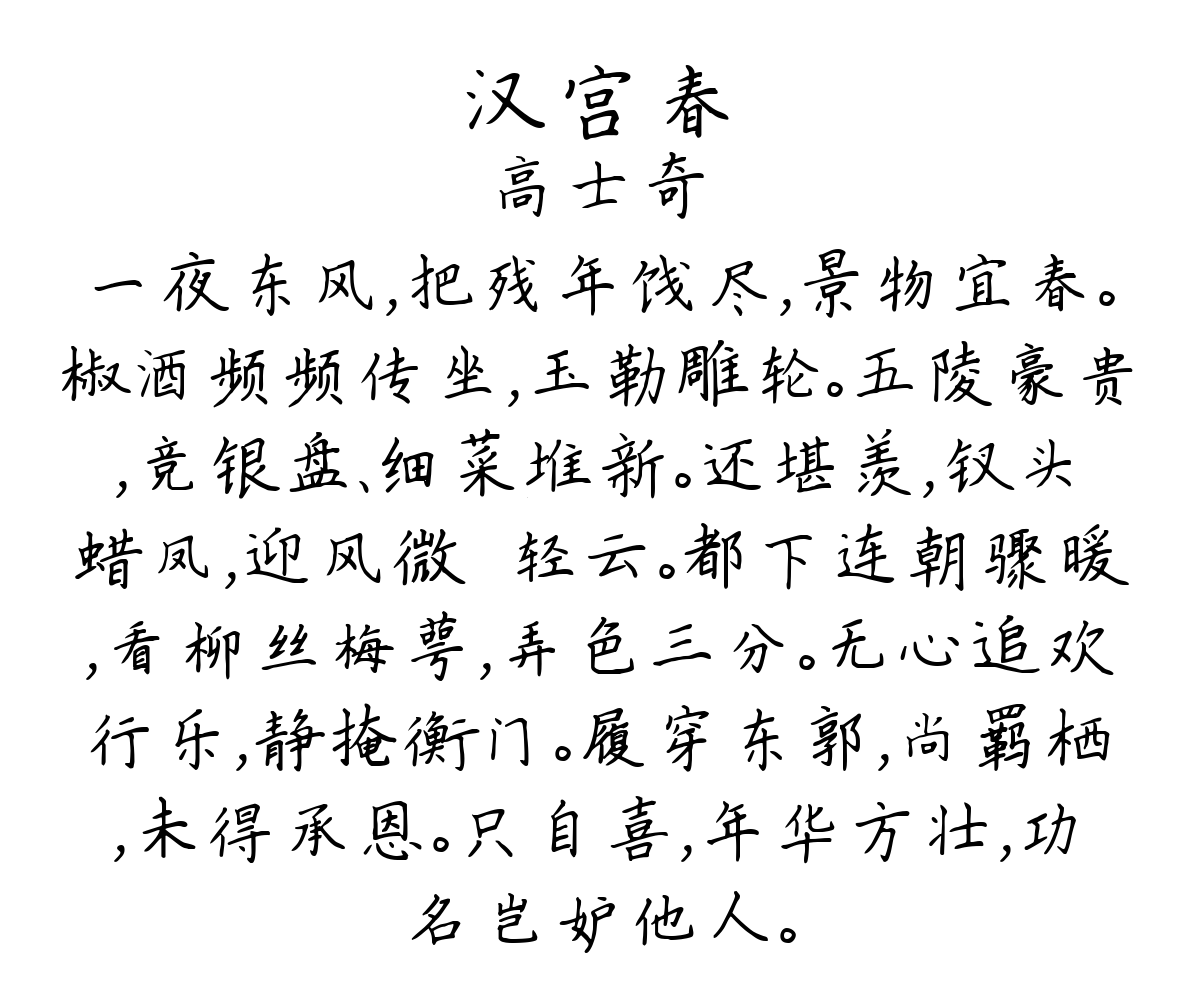 汉宫春
高士奇
一夜东风,把残年饯尽,景物宜春。
椒酒频频传坐,玉勒雕轮。五陵豪贵
,竞银盘、细菜堆新。还堪羡,钗头
蜡凤,迎风微 轻云。都下连朝骤暖
,看柳丝梅萼,弄色三分。无心追欢
行乐,静掩衡门。履穿东郭,尚羁栖
,未得承恩。只自喜,年华方壮,功
名岂妒他人。